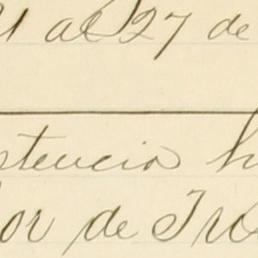 21 al 27 de
stencia h
or de Tr